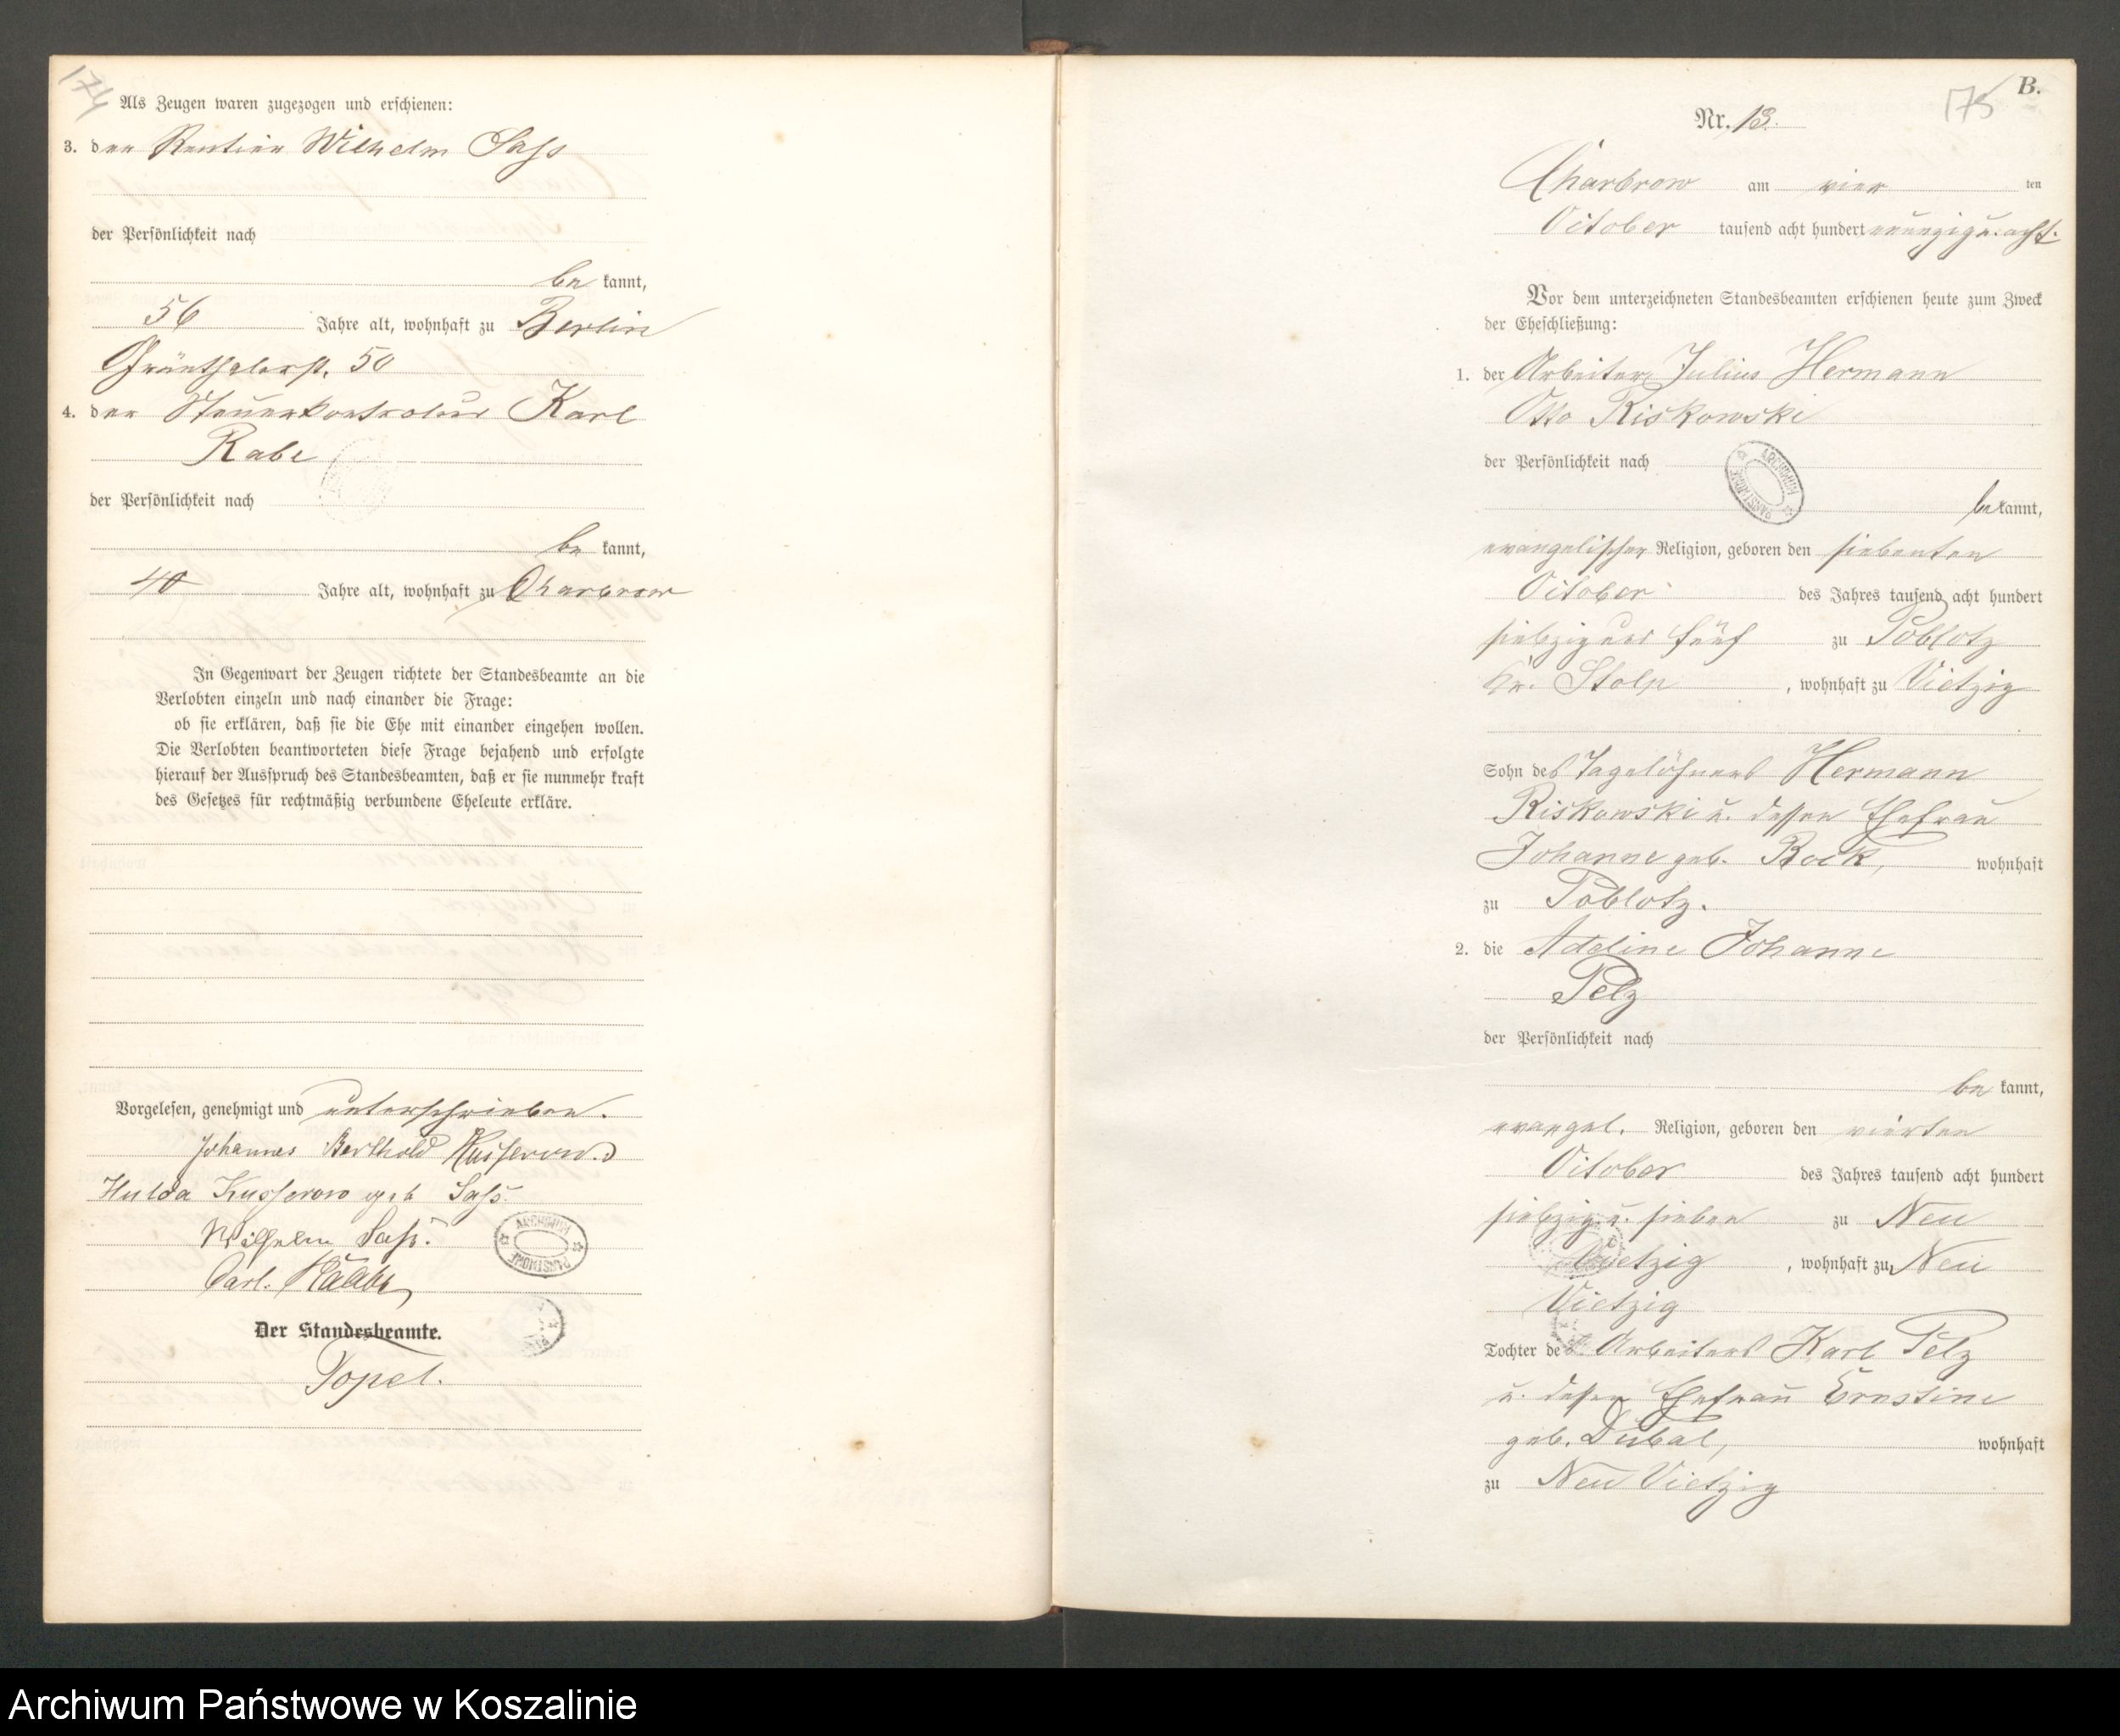 174
Als Zeugen waren zugezogen und erschienen:
3. der Rentier Wilhelm Sass
der Persönlichkeit nach
be kannt,
56 Jahre alt, wohnhaft zu Berlin
Grünthalerst. 50
4. der Steuerkontroleur Karl
Rabe
der Persönlichkeit nach
be kannt,
40 Jahre alt, wohnhaft zu Charbrow
In Gegenwart der Zeugen richtete der Standesbeamte an die
Verlobten einzeln und nach einander die Frage:
ob sie erklären, daß sie die Ehe mit einander eingehen wollen.
Die Verlobten beantworteten diese Frage bejahend und erfolgte
hierauf der Ausspruch des Standesbeamten, daß er sie nunmehr kraft
des Gesetzes für rechtmäßig verbundene Eheleute erkläre.
Vorgelesen, genehmigt und unterschrieben.
Johannes Berthold Kusserow
Hulda Kusserow geb Saß.
Wilhelm Saß.
Carl
ARCHIWUM PAŃSTWOWE
Der Standesbeamte.
Topel.
B.
175
Nr. 13.
Charbrow am vier ten
October tausend acht hundert neunzig u. acht.
Vor dem unterzeichneten Standesbeamten erschienen heute zum Zweck
der Eheschließung:
1. der Arbeiter Julius Hermann
Otto Riskowski
der Persönlichkeit nach
ARCHIWUM PAŃSTWOWE
be kannt,
evangelischer Religion, geboren den siebenten
October des Jahres tausend acht hundert
siebzig und fünf zu Poblotz
Kr. Stolp , wohnhaft zu Vietzig
Sohn des Tagelöhners Hermann
Riskowski u. dessen Ehefrau
Johanne geb. Bock, wohnhaft
zu Poblotz.
2. die Adeline Johanne
Pelz
der Persönlichkeit nach
be kannt,
evangel. Religion, geboren den vierten
October des Jahres tausend acht hundert
siebzig u. sieben zu Neu
Vietzig , wohnhaft zu Neu
Vietzig
Tochter des Arbeiters Karl Pelz
u. dessen Ehefrau Ernstine
geb. Dubal, wohnhaft
zu Neu Vietzig
Archiwum Państwowe w Koszalinie